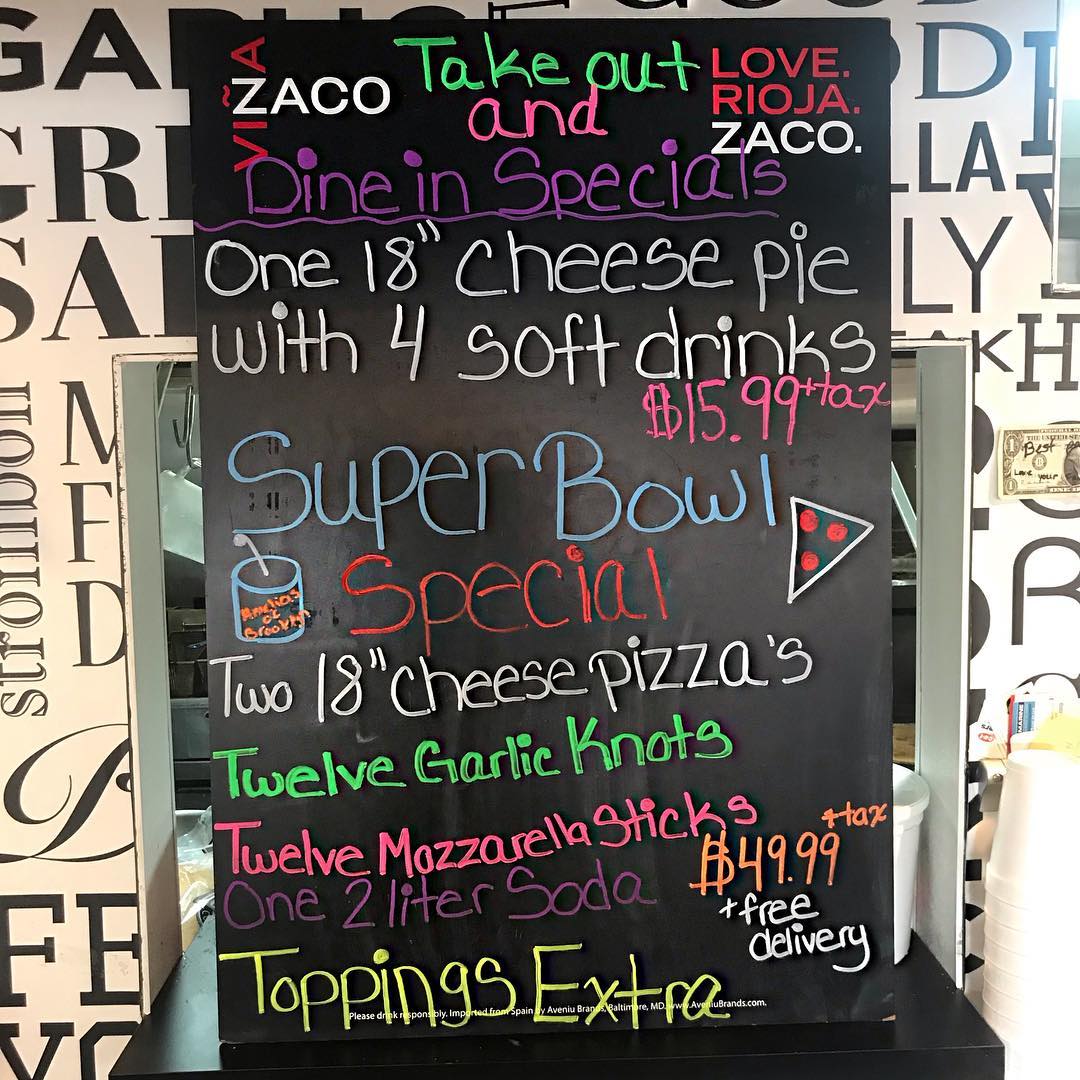 VIÑA
ZACO
Take out
and
LOVE.
RIOJA.
ZACO.
Dine in Specials
One 18" cheese pie
with 4 soft drinks
$15.99 + tax
Super Bowl
Special
Amelias
of
Brooklyn
Two 18" cheese pizza's
Twelve Garlic Knots
Twelve Mozzarella Sticks
One 2 liter Soda
$49.99 + tax
+ free
delivery
Toppings Extra
Please drink responsibly. Imported from Spain by Aveniu Brands, Baltimore, MD. www.AveniuBrands.com.
stromboli
Best